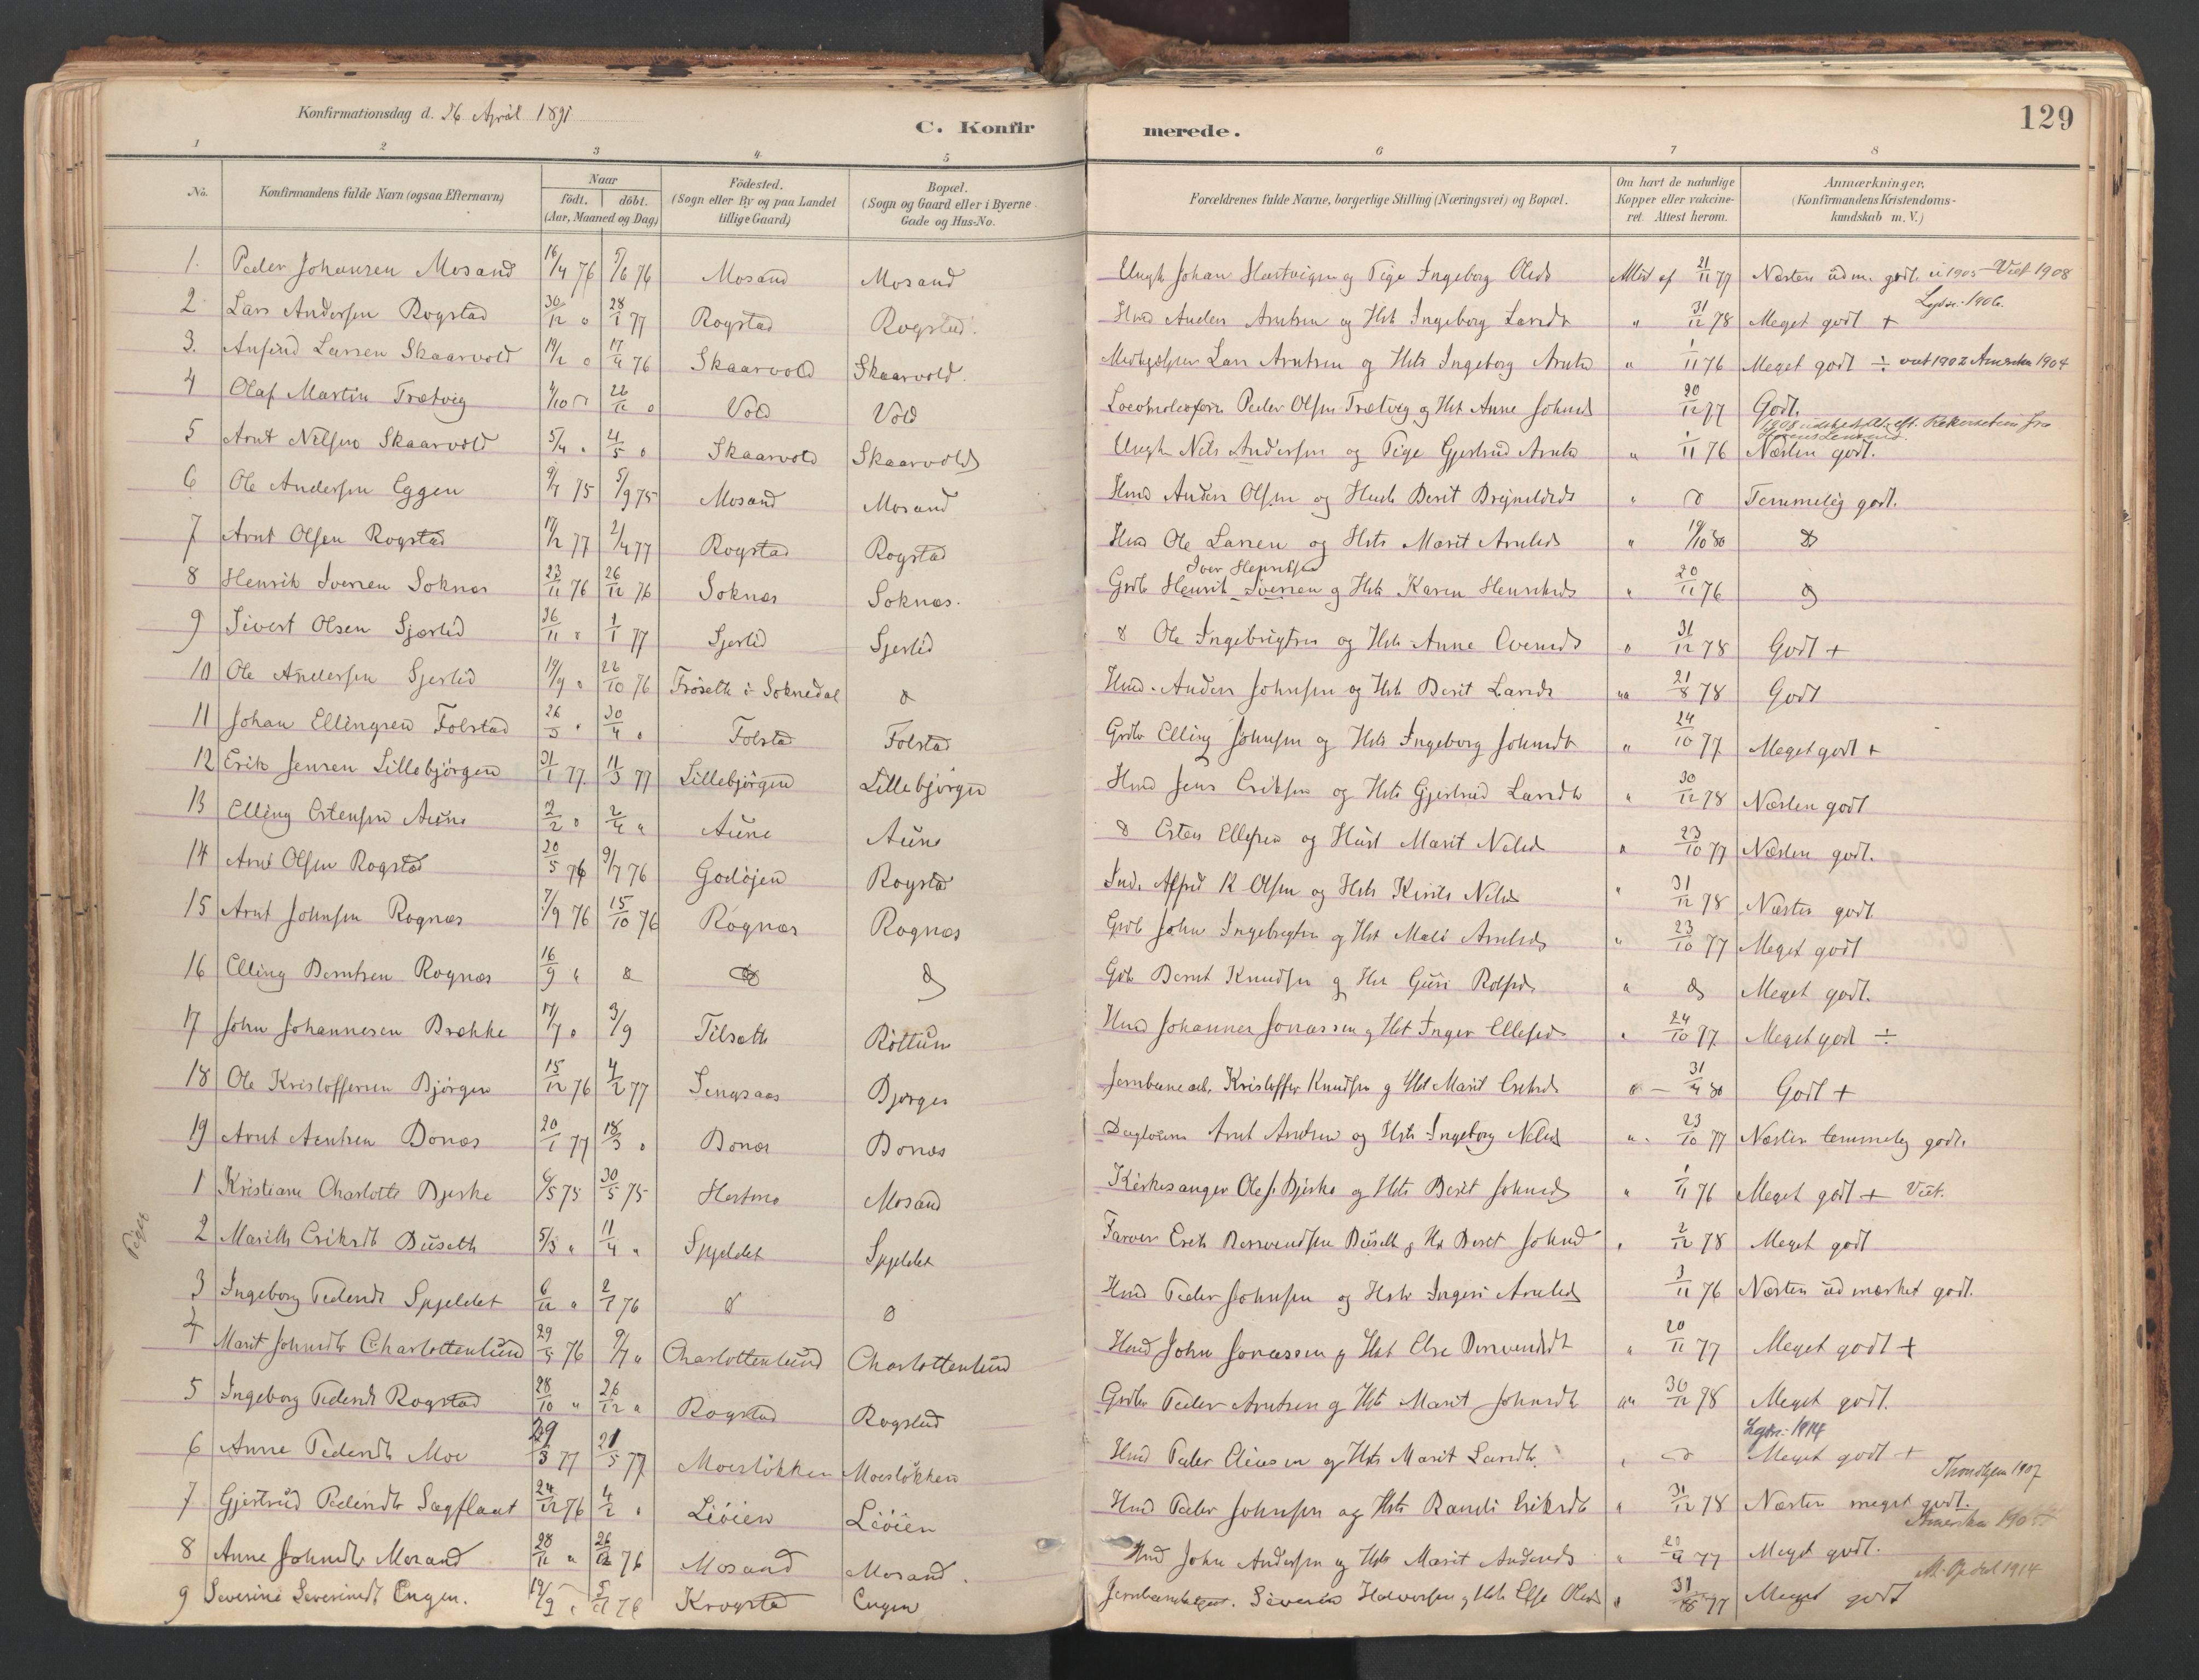 Konfirmationsdag d. 26 April 1891
C. Konfirmerede.
129
1 2 3 4 5 6 7 8
No. Konfirmandens fulde Navn (ogsaa Efternavn) Naar födt. döbt. (Aar, Maaned og Dag) Födested. (Sogn eller By og paa Landet tillige Gaard) Bopæl. (Sogn og Gaard eller i Byerne Gade og Hus-No. Forældrenes fulde Navne, borgerlige Stilling (Næringsvei) og Bopæl. Om havt de naturlige Kopper eller vakcineret. Attest herom. Anmærkninger. (Konfirmandens Kristendomskundskab m. V.)
1. Peder Johansen Mosand 16/4 76 5/6 76 Mosand Mosand Ungk Johan Hartvigsen og Pige Ingeborg Olsd 21/11 77 Næsten udm. godt. 1905 - Viet 1908
2 Lars Andersen Rogstad 30/12 " 28/1 77 Rogstad Rogstad. Hmd Anders Arntsen og Hst Ingeborg Larsdt " 31/12 78 Meget godt + Lysn. 1906.
3. Anfind Larsen Skaarvold 17/4 76 Skaarvold Skaarvold. Lars Arntsen og Hst Ingeborg Arntsd " 1/11 76 Meget godt ÷ viet 1902 Amerika 1904
4 Olaf Martin Trætvig Vold Vold Peder Olsen Trætvig og Hst Anne Johnsd 20/12 77 Godt.
5 Arnt Nilsen Skaarvold 5/4 " 4/5 " Skaarvold Skaarvold Ungk Nils Andersen og Pige Gjertrud Arntsd " 1/11 76 Næsten godt.
6 Ole Andersen Eggen 9/7 75 5/9 75 Mosand Mosand Hmd Anders Olsen og Hust Berit " Temmelig godt.
7 Arnt Olsen Rogstad 17/2 77 2/4 77 Rogstad Rogstad Hmd Ole Larsen og Hst Marit Arntsd " 19/10 80
8 Henrik Iversen Soknæs 23/11 76 26/12 76 Soknæs Soknæs. Iver Henriksen
Grdb Henrik Iversen og Hst Karen Henriksd " 20/11 76
9 Sivert Olsen Sjærlid 26/11 " 1/1 77 Sjerlid Sjerlid Ole Ingebrigtsen og Hst Anne Evensd " 31/12 78 Godt +
10 Ole Andersen Sjerlid 19/9 " 22/10 76 Fröseth i Soknedal Hmd. Anders Johnsen og Hst Berit Larsdt " 21/8 78 Godt
11 Johan Ellingsen Folstad 26/3 " 30/4 " Folstad Folstad Grdb Elling Johnsen og Hst Ingeborg Johnsdt " 24/10 77 Meget godt +
12 Erik Jensen Lillebjörgen 31/1 77 11/3 77 Lillebjörgen Lillebjörgen Hmd Jens Eriksen og Hst Gjertrud Larsdt " 30/12 78 Næsten godt
13 Elling Estensen Aune 2/2 " 2/4 " Aune Aune Esten Ellefsen og Hust Marit Nilsd " 23/10 77 Næsten godt.
14 Arne Olsen Rogstad 20/5 76 9/7 76 Godöjen Rogstad Ind. Alfred R Olsen og Hst Kirsti Nilsd " 31/12 78 Næsten godt.
15 Arnt Johnsen Rognæs 7/9 76 15/10 76 Rognæs Rognæs Grdb John Ingebrigtsen og Hst Mali Arntsd " 23/10 77 Meget godt
16 Elling Berntsen Rognæs 16/9 " Grdb Bernt Knudsen og Hst Guri Rolfsd. " Meget godt.
17 John Johannesen Brække 17/7 " 3/9 Tilseth Röttum Hmd Johannes Jonassen og Hst Inger Ellefsd " 24/10 77 Meget godt ÷
18 Ole Kristoffersen Bjórgen 15/12 76 4/2 77 Sengsaas Bjørgen Jernbanearb. Kristoffer Knudsen og Hst Marit Eriksd 31/4 80 Godt +
19 Arnt Arntsen Bonæs 20/1 77 18/3 " Bonæs Bonæs Arnt Arntsen og Hst Ingeborg Nilsd " 23/10 77 Næsten temmelig godt.
Piger
1 Kristiane Charlotte Bjerke 6/5 75 30/5 75 Hestmo Mosand Kirkesanger Ole J. Bjerke og Hst Berit Johnsd " 1/11 76 Meget godt + Viet.
2 Marith Eriksdt Buseth 5/3 " 11/4 " Spjeldet Spjeldet Farver Erik Buseth og Hst Berit Johnsd " 2/12 78 Meget godt
3 Ingeborg Pedersdt Spjeldet 6/12 " 2/1 76 Hmd Peder Johnsen og Hst Ingeri Arntsd 3/11 76 Næsten udmærket godt.
4 Marit Johnsdt Charlottenlund 29/5 76 9/7 " Charlottenlund Charlottenlund Hmd John Jonassen og Hst Else " 20/11 77 Meget godt +
5 Ingeborg Pedersdt Rogstad 28/10 " 26/12 " Rogstad Rogstad Grdb Peder Arntsen og Hst Marit Johnsdt " 30/12 78 Meget godt.
6 Anne Pedersdt Moe 29/3 77 21/5 77 Moesløkken Moesløkken Hmd Peder Eliasen og Hst Marit Larsdt. " Lysn. 1914 Meget godt +
7 Gjertrud Pedersdt Sagflaat 24/12 76 4/2 " Liöien Liöien Hmd Peder Johnsen og Hst Randi Eriksdt " 31/12 78 Næsten meget godt. Trondhjem 1907
8 Anne Johnsdt Mosand 28/11 " 26/12 76 Mosand Mosand. Hmd John Andersen og Hst Marit Andersd " 77 Meget godt. Amerika
9 Severine Severinsdt Engen. 19/9 " Krogstad Engen Severin Halvorsen og Hst Else Olsd " 77 Meget godt 1914